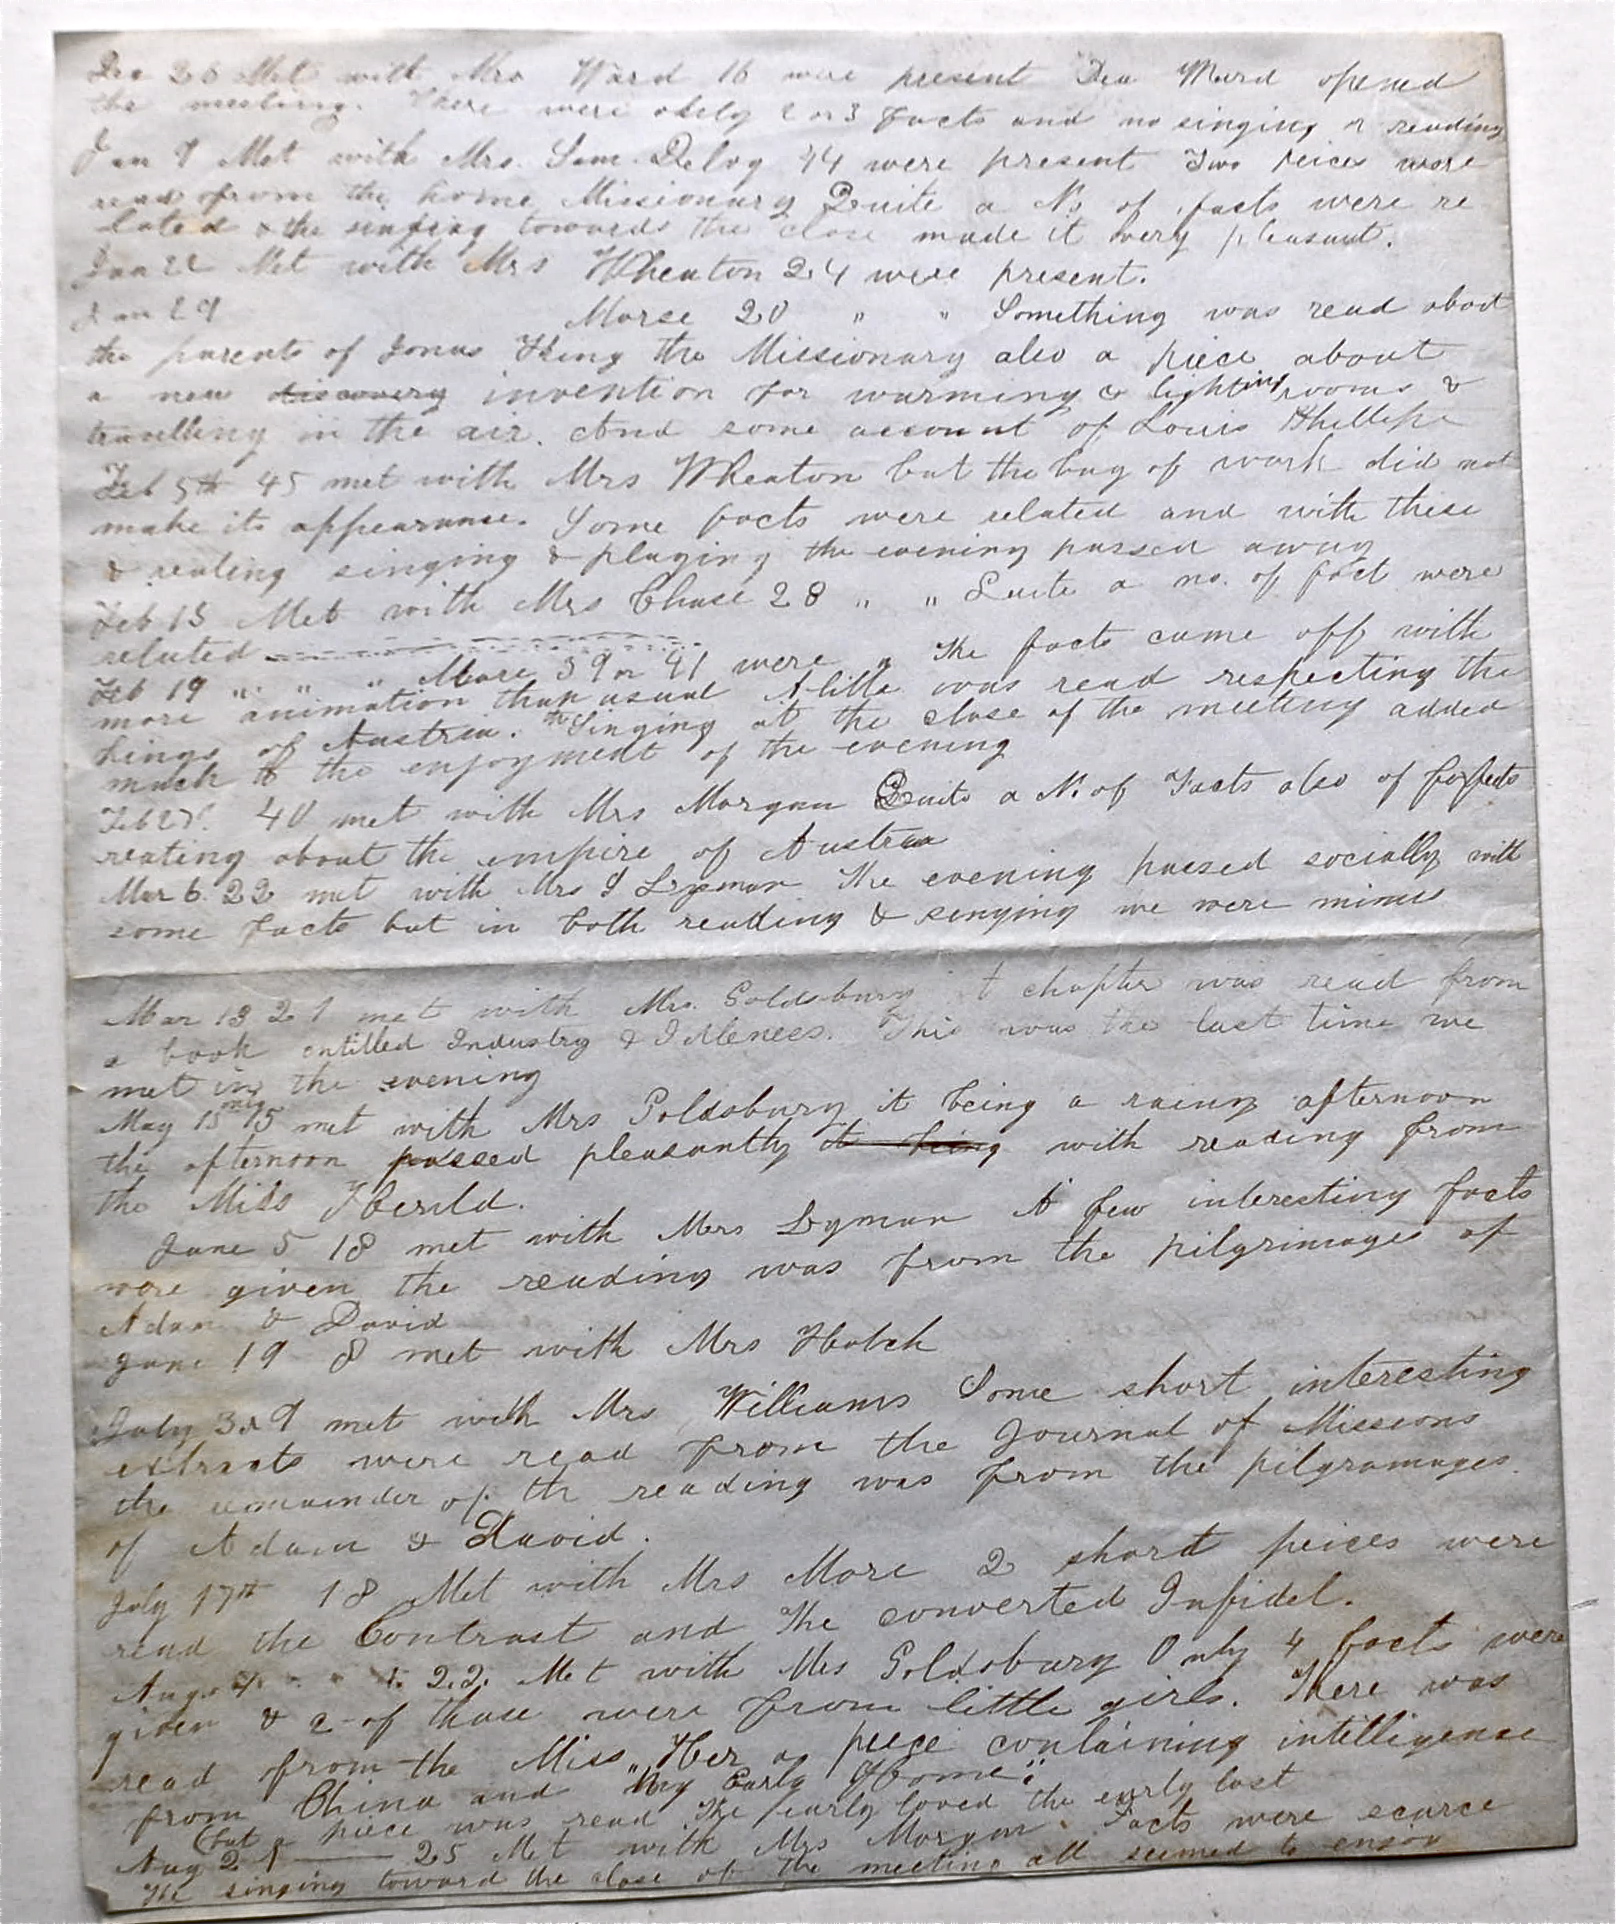 Dec 26 Met with Mrs Ward 16 were present Dea Ward opened
the meeting. There were only 2 or 3 facts and no singing or reading
Jan 9 Met with Mrs. Sam. Delvy 44 were present Two peices were
read from the home Missionary Quite a No of facts were re
lated & the singing towards the close made it very pleasant.
Jan 22 Met with Mrs Wheaton 24 were present.
Jan 29 Morse 20 " " Something was read about
the parents of Jonas King the Missionary also a piece about
a new discovery invention for warming & lighting rooms &
travelling in the air. And some account of Louis Phillipe
Feb 5th 45 met with Mrs Wheaton but the bag of work did not
make its appearance. Some facts were related and with these
& reading singing & playing the evening passed away
Feb 13 Met with Mrs Chase 28 " " Quite a no. of fact were
related
Feb 19 " " " More 39 or 41 were " The facts came off with
more animation than usual A little was read respecting the
kings of Austria. The Singing at the close of the meeting added
much to the enjoyment of the evening
Feb 27. 40 met with Mrs Morgan Quite a No. of Facts also of
reating about the empire of Austria
Mar 6. 22 met with Mrs S Lyman The evening passed socially with
some facts but in both reading & singing we were minus
Mar 13 21 met with Mrs. Goldsbury A chapter was read from
a book entitled Industry & Idleness. This was the last time we
met in the evening
May 15 15 met with Mrs Goldsbury it being a rainy afternoon
the afternoon passed pleasantly it being with reading from
the Miss Herild.
June 5 18 met with Mrs Lyman A few interesting facts
were given the reading was from the pilgrimages of
Adam & David
June 19 8 met with Mrs Hatch
July 3d 9 met with Mrs Williams Some short interesting
extracts were read from the Journal of Missions
the remainder of th reading was from the pilgramages
of Adam & David.
July 17th 18 Met with Mrs More 2 short peices were
read the Contrast and The converted Infidel.
Augs 7 " " 22. Met with Mrs Goldsbury Only 4 facts were
given & 2 of those were from little girls. There was
read from the Miss Her a peece containing intelligence
from China and "My Early Home".
(but a piece was read The early loved the early lost
Aug 21 — 25 Met with Mrs Morgan. Facts were scarce
The singing toward the close of the meeting all seemed to enjoy